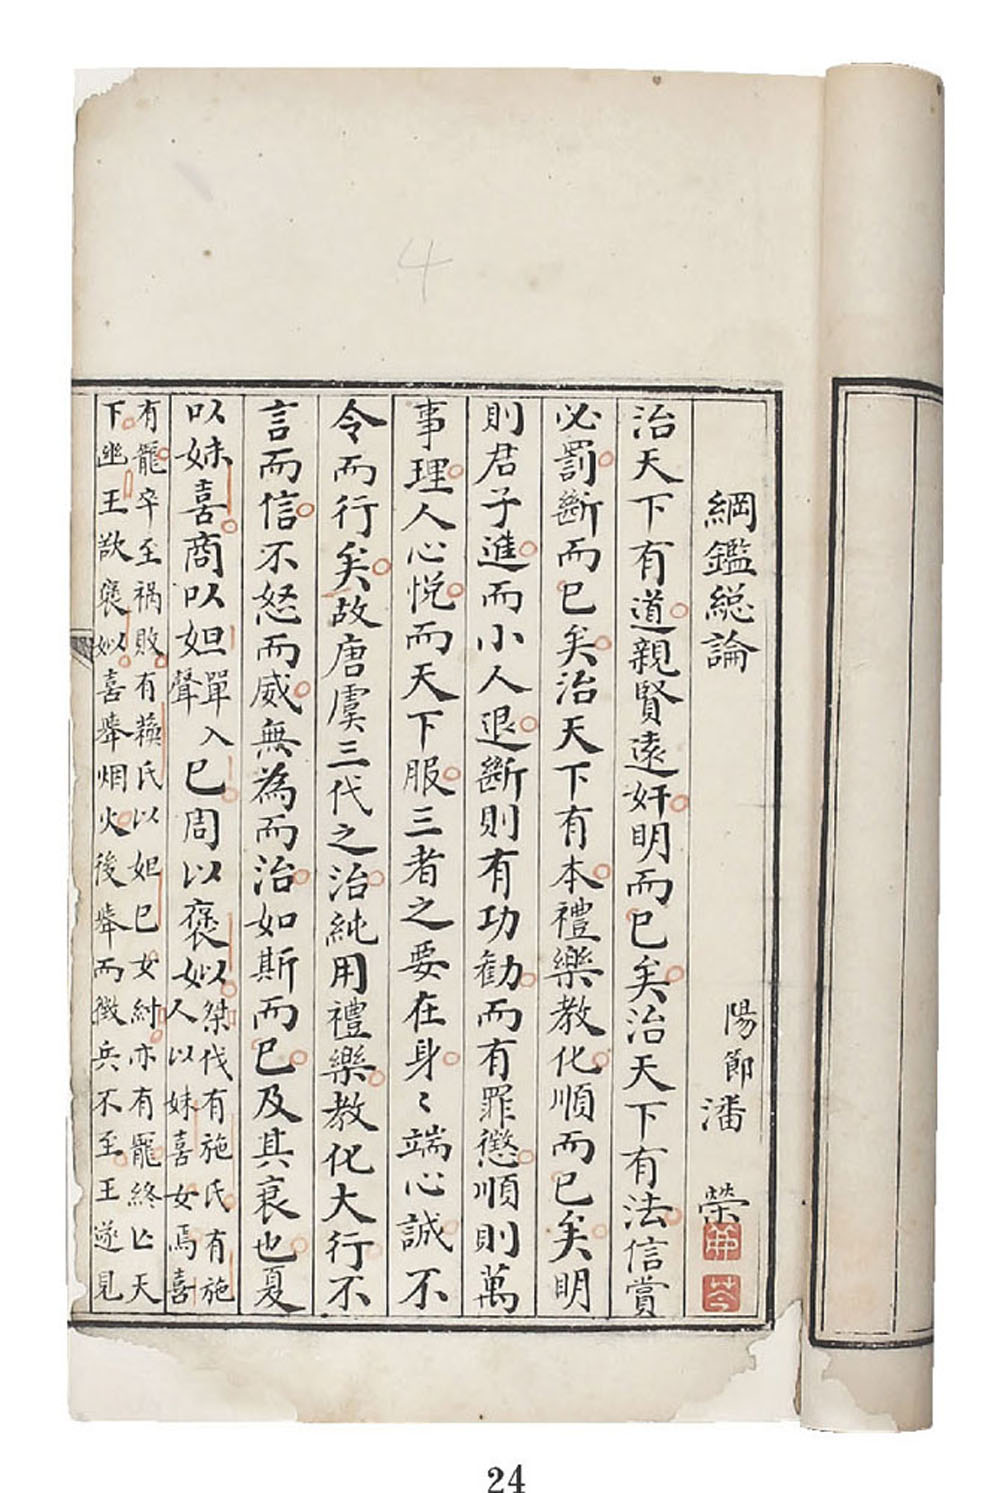 綱鑑総論
陽節潘榮
治天下有道親賢遠奸明而已矣治天下有法信賞
必罰斷而已矣治天下有本禮樂教化順而已矣明
則君子進而小人退斷則有功勸而有罪懲順則萬
事理人心悅而天下服三者之要在身〻端心誠不
令而行矣故唐虞三代之治純用禮樂教化大行不
言而信不怒而威無為而治如斯而已及其衰也夏
以妹喜商以妲單入聲已周以褒姒桀伐有施氏有施人以妹喜女焉喜
有寵卒至禍敗有蘓氏以妲已女紂亦有寵終亡天
下幽王欲褒姒喜舉烟火後舉而徵兵不至王遂見
4
24